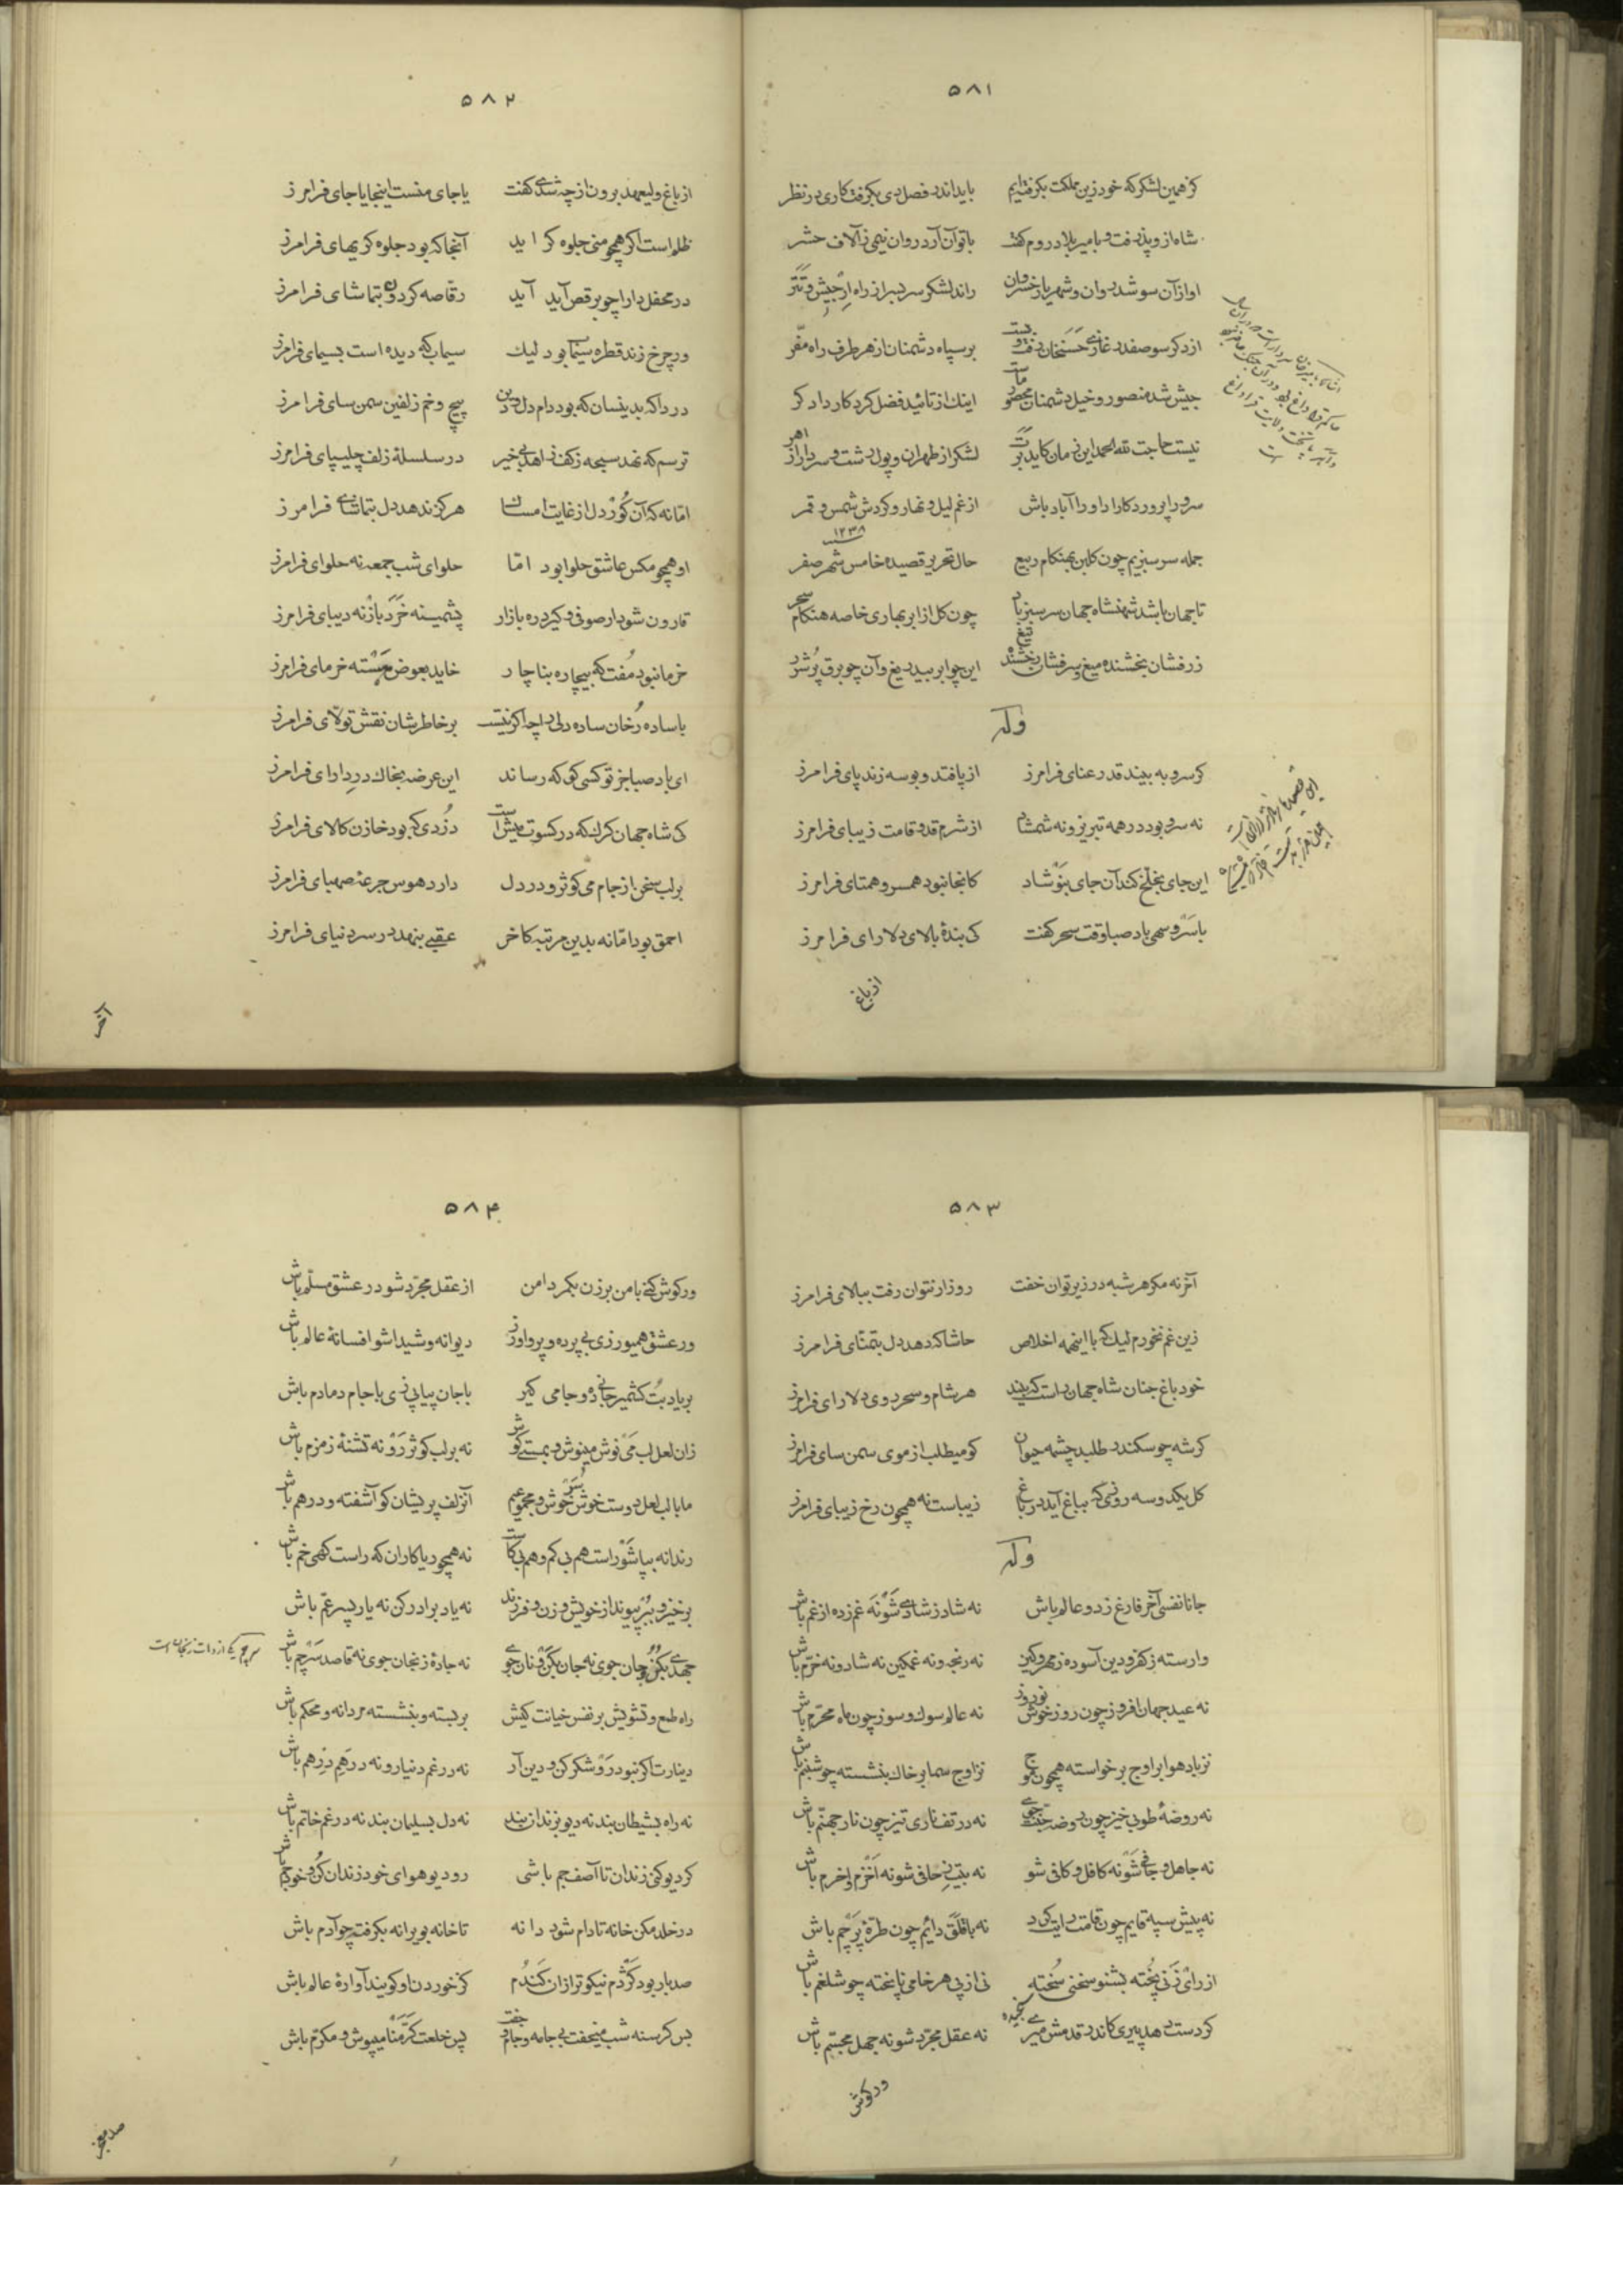 ۵۸۱
کز همین لشکر که خود زین مملکت بگرفته‌ایم باید اندر فصل دی بگرفت کاری در نظر
شاه از وپذرفت و با میر بلا در روم گفت با تو آن آرد روان نیمی ز آلاف حشر
او از آن سو شد روان و شهریار خسروان راند لشکر سربسر از راه ارجیش و تتر
از دگر سو صفدر غازی حسنخان رفت و بست بر سپاه دشمنان از هر طرف راه مفر
جیش شد منصور و خیل دشمنان محصور ماست اینک از تائید فضل کردکار دادکر
نیست حاجت لله الحمد این زمان کاید برت لشکر از طهران و پول از رشت و سردار از اهر
سرورا پروردکارا داورا آباد باش از غم لیل و نهار و کردش شمس و قمر
جمله سرسبزیم چون کلبن بهنکام ربیع حال تحریر قصیده خامس شهر صفر ۱۲۳۸
تا جهان باشد شهنشاه جهان سرسبز باد چون کل از ابر بهاری خاصه هنکام سحر
زرفشان بخشنده میغ و سرفشان رخشنده تیغ این چو ابر بیدریغ و آن چو برق پرشرر
وله
کر سرو به بیند قد رعنای فرامرز از پا فتد و بوسه زند پای فرامرز
نه سرو بود در همه تبریز و نه شمشاد از شرم قد و قامت زیبای فرامرز
این جای بخلخ کند آن جای بنوشاد کانجا نبود همسر و همتای فرامرز
با سرو سهی باد صبا وقت سحر کفت کی بندهٔ بالای دلارای فرامرز
از باغ
۵۸۲
از باغ ولیعهد برون از چه شدی کفت یا جای منست اینجا یا جای فرامرز
ظلم است اکر همچو منی جلوه کر آید آنجا که بود جلوه کریهای فرامرز
در محفل دارا چو برقص آید آید رقاصه کردون بتماشای فرامرز
ور چرخ زند قطره سیما بود لیک سیماب که دیده است بسیمای فرامرز
دردا که بدینسان که بود دام دل و دین پیچ و خم زلفین سمن سای فرامرز
ترسم که نهد سبحه ز کف زاهد بی خیر در سلسلهٔ زلف چلیپای فرامرز
اما نه که آن کوردل از غایت امساک هرکز ندهد دل بتماشای فرامرز
او همچو مکس عاشق حلوا بود اما حلوای شب جمعه نه حلوای فرامرز
قارون شود ار صوفی و کیرد ره بازار پشمینه خرد باز نه دیبای فرامرز
خرما نبود مفت که بیچاره بناچار خاید بعوض هسته خرمای فرامرز
با ساده رخان ساده دلی را چه اکر نیست بر خاطرشان نقش تولای فرامرز
ای باد صبا جز تو کسی کو که رساند این عرضه بخاک در دارای فرامرز
کی شاه جهان کرک که در کسوت میش است دزدی که بود خازن کالای فرامرز
بر لب سخن از جام می کوثر و در دل دارد هوس جرعه صهبای فرامرز
احمق بود اما نه بدین مرتبه کاخر عقبی بنهد در سر دنیای فرامرز
آخر
۵۸۳
آخر نه مکر هر شبه در زیر توان خفت روز ار نتوان رفت ببالای فرامرز
زین غم نخورم لیک که با اینهمه اخلاص حاشا که دهد دل بتمنای فرامرز
خود باغ جنان شاه جهان راست که بیند هر شام و سحر روی دلارای فرامرز
کر شه چو سکندر طلبد چشمه حیوان کو میطلب از موی سمن سای فرامرز
کل یکدو سه روزی که بباغ آید در باغ زیباست نه همچون رخ زیبای فرامرز
وله
جانا نفسی آخر فارغ ز دو عالم باش نه شاد ز شادی شو نه غم زده از غم باش
وارسته ز کفر و دین آسوده ز مهر و کین نه رنجه و نه غمکین نه شاد و نه خرم باش
نه عید جهان افروز چون روز خوش نوروز نه عالم سوک و سوز چون ماه محرم باش
نز باد هوا بر اوج برخواسته همچون موج نز اوج سما بر خاک بنشسته چو شبنم باش
نه روضهٔ طوبی خیز چون روضه جنت جوی نه در تف ناری تیز چون نار جهنم باش
نه جاهل و جافی شو نه کافل و کافی شو نه بشر حافی شو نه اخزم و اخرم باش
نه پیش سپه قایم چون قامت رایت کرد نه با قلق دائم چون طرهٔ پرچم باش
از رای زنی پخته بشنو سخنی سخته نی از پی هر خامی ناپخته چو شلغم باش
کر دست دهد پیری کاندر قدمش میری نه عقل مجرد شو نه جهل مجسم باش
ور کوش
۵۸۴
ور کوش کنی با من برزن بکمر دامن از عقل مجرد شو در عشق مسلم باش
ور عشق همیورزی بی پرده و پروا ورز دیوانه و شیدا شو افسانهٔ عالم باش
بر یاد بت کشمیر جانی ده و جامی کیر با جان پیاپی زی با جام دمادم باش
زان لعل لب می نوش مینوش و بمستی کوش نه بر لب کوثر رو نه تشنهٔ زمزم باش
ما با لب لعل دوست خوش سرخوش و مجموعیم آنزلف پریشان کو آشفته و درهم باش
رندانه بیا شو راست هم بی کم و هم بی کاست نه همچو ریاکاران که راست کهی خم باش
برخیز و ببر پیوند از خویش و زن و فرزند نه یاد برادر کن نه یار پسر عم باش
جهدی بکن و جان جوی نه جان بکن و نان جوی نه جادهٔ زنجان جوی نه قاصد سرچم باش
سرچم یکی از دهات زنجان است
راه طمع و تشویش بر نفس خیانت کیش بر بسته و بنشسته مردانه و محکم باش
دینارت اکر نبود رو شکر کن و دین آر نه در غم دینار و نه در هم درهم باش
نه راه بشیطان بند نه دیو بزندان بند نه دل بسلیمان بند نه در غم خاتم باش
کر دیو کنی زندان تا آصف جم باشی رو دیو هوای خود زندان کن و خود جم باش
در خلد مکن خانه تا دام شود دانه تا خانه بویرانه بکرفت چو آدم باش
صد بار بود کژدم نیکوتر از آن کندم کز خوردن او کویند آوارهٔ عالم باش
بس کرسنه شب میخفت بی جامه و جا و جفت پس خلعت کرمنا میپوش و مکرم باش